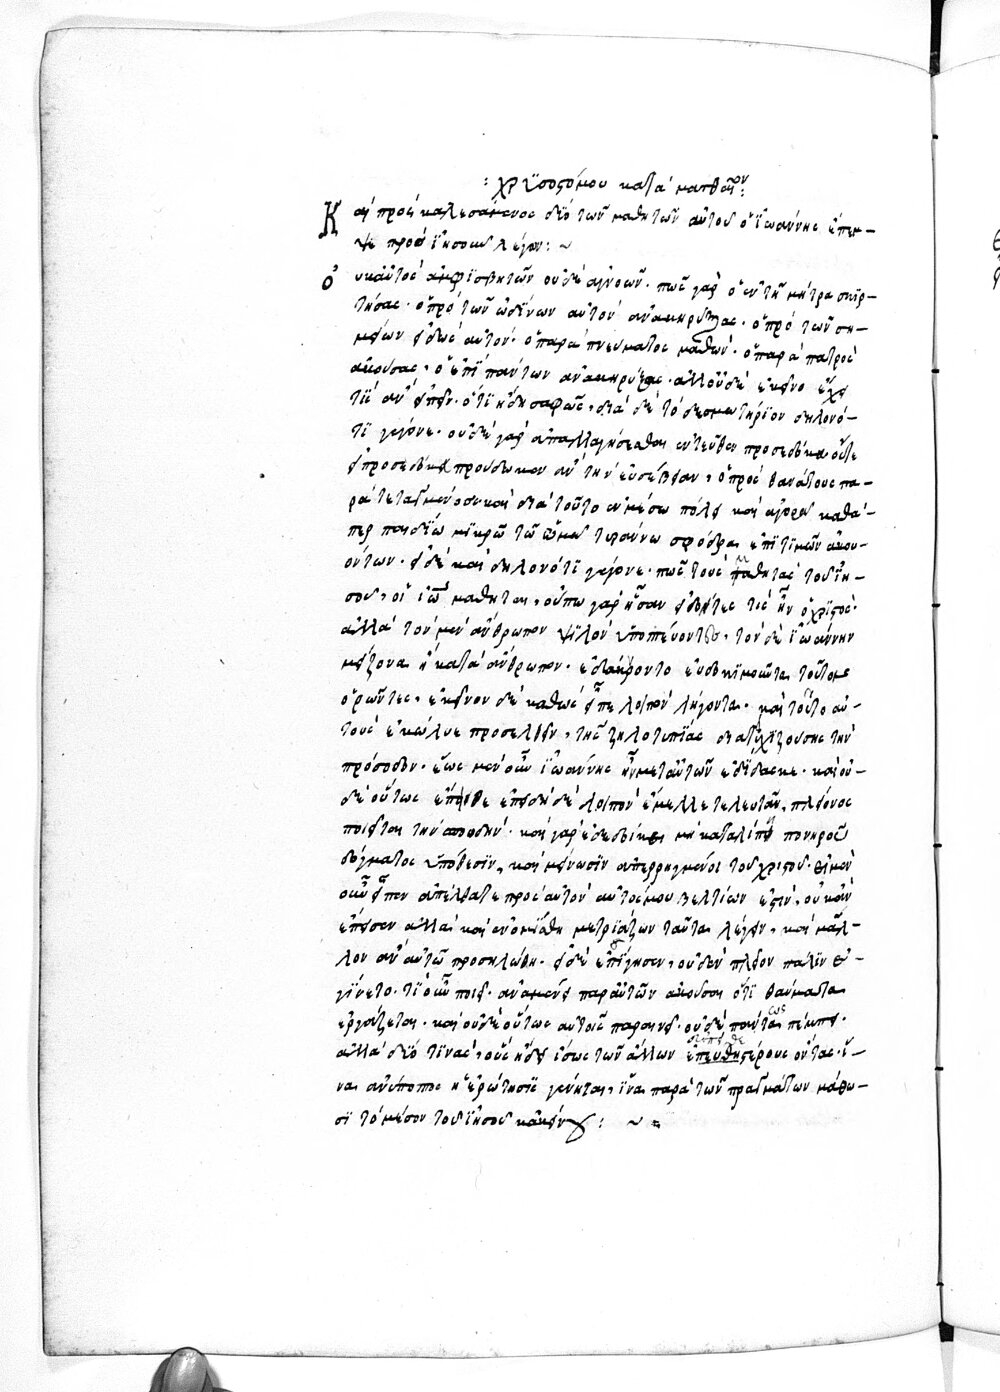 : χρυσοστόμου κατὰ ματθαῖον :
Καὶ προσκαλεσάμενος δύο τῶν μαθητῶν αὐτοῦ ὁ ἰωάννης ἔπεμ-
ψε πρὸς ἰησοῦν λέγων : ~
οὐκ αὐτὸς ἀμφισβητῶν οὐδὲ ἀγνοῶν · πῶς γὰρ ὁ ἐν τῇ μήτρα σκιρ-
τήσας · ὁ πρὸ τῶν ὠδίνων αὐτὸν ἀνακηρύξας · ὁ πρὸ τῶν ση-
μείων εἰδὼς αὐτόν · ὁ παρὰ πνεύματος μαθών · ὁ παρὰ πατρὸς
ἀκούσας · ὁ ἐπὶ πάντων ἀνακηρύξας · ἀλλ' οὐδὲ ἐκεῖνο ἔχει
τὶς ἂν εἰπεῖν · ὅτι ᾔδει σαφῶς, διὰ δὲ τὸ δεσμωτήριον δηλονό-
τι γέγονε · οὐδὲ γὰρ ἀπαλλαγήσεσθαι ἐντεῦθεν προσεδόκα οὔτε
εἰ προσεδόκει προύδωκεν ἂν τὴν εὐσέβειαν, ὁ πρὸς θανάτους πα-
ρατεταγμένος καὶ διὰ τοῦτο ἐν μέσω πόλει καὶ ἀγορᾶ καθά-
περ παιδίω μικρῶ τῶ ὠμῶ τυράννω σφόδρα ἐπιτιμῶν ἀκου-
όντων · εἰ δὲ καὶ δηλονότι γέγονε · πῶς τοὺς μαθητὰς τοῦ ἰη-
σοῦ, οἱ ἰω μαθηταὶ, οὔπω γὰρ ἦσαν εἰδότες τίς ἦν ὁ χριστός ·
ἀλλὰ τὸν μὲν ἄνθρωπον ψιλὸν ὑποπτεύοντες, τὸν δὲ ἰωάννην
μείζονα ἢ κατὰ ἄνθρωπον · ἐδάκνοντο εὐδοκιμοῦντα τοῦτον
ὁρῶντες, ἐκεῖνον δὲ καθὼς εἶπε λοιπὸν λήγοντα · καὶ τοῦτο αὐ-
τοὺς ἐκώλυε προσελθεῖν, τῆς ζηλοτυπίας διατειχιζούσης τὴν
πρόσοδον · ἕως μὲν οὖν ἰωάννης ἦν μετ' αὐτῶν ἐδίδασκε · καὶ οὐ-
δὲ οὕτως ἔπειθε ἐπειδὴ δὲ λοιπὸν ἔμελλε τελευτᾶν, πλείονος
ποιεῖται τὴν σπουδήν · καὶ γὰρ ἐδεδοίκει μὴ καταλίπη πονηροῦ
δόγματος ὑπόθεσιν, καὶ μείνωσιν ἀπερρηγμένοι τοῦ χριστοῦ · εἰ μὲν
οὖν εἶπεν ἀπέλθατε πρὸς αὐτὸν αὐτός μου βελτίων ἐστὶν, οὐκ ἂν
ἔπεισεν ἀλλὰ καὶ ἐνομίσθη μετριάζων ταῦτα λέγειν, καὶ μᾶλ-
λον ἂν αὐτῶ προσηλώθη · εἰ δὲ ἐσίγησεν, οὐδὲν πλέον πάλιν ἐ-
γίνετο · τί οὖν ποιεῖ · ἀναμένει παρ' αὐτῶν ἀκοῦσαι ὅτι θαύματα
ἐργάζεται · καὶ οὐδὲ οὕτως αὐτοῖς παραινεῖ · οὐδὲ πάντας πέμπει ·
ἀλλὰ δύο τινὰς, οὓς ᾔδει ἴσως τῶν ἄλλων εὐπειθεστέρους ὄντας · ἵ-
να ἀνύποπτος ἡ ἐρώτησις γένηται, ἵνα παρὰ τῶν πραγμάτων μάθω-
σι τὸ μέσον τοῦ ἰησοῦ κἀκείνου : ~